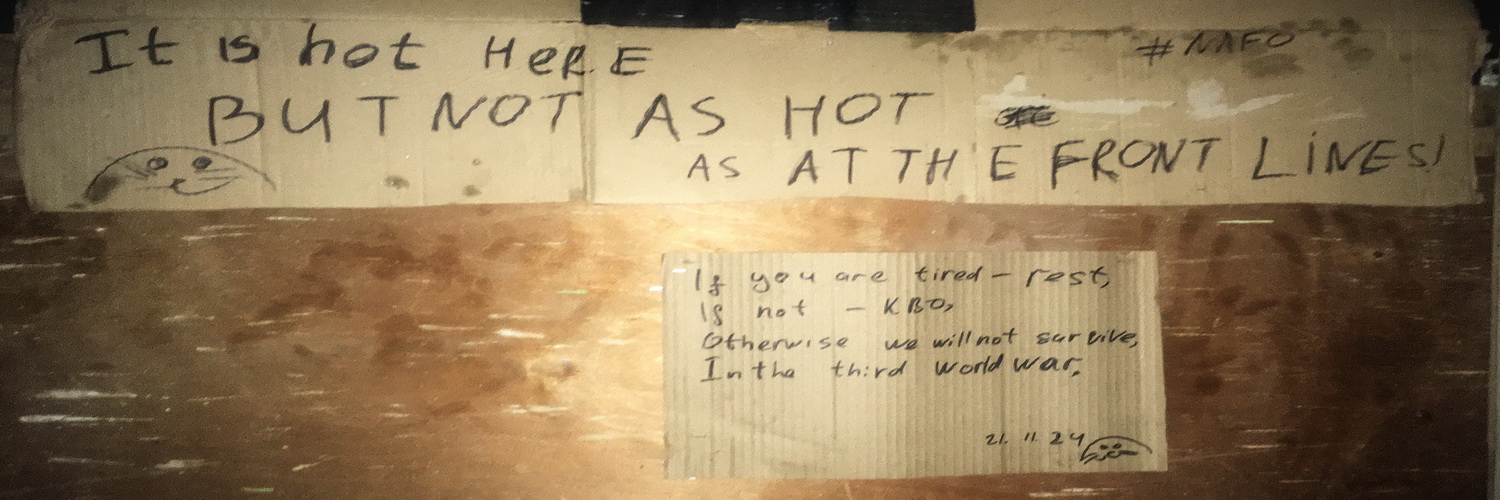 It is hot HeRE
#NAFO
BUT NOT AS HOT
AS AT THE FRONT LINES!
If you are tired - rest,
If not - KBO,
Otherwise we will not survive,
In the third world war.
21.11.24